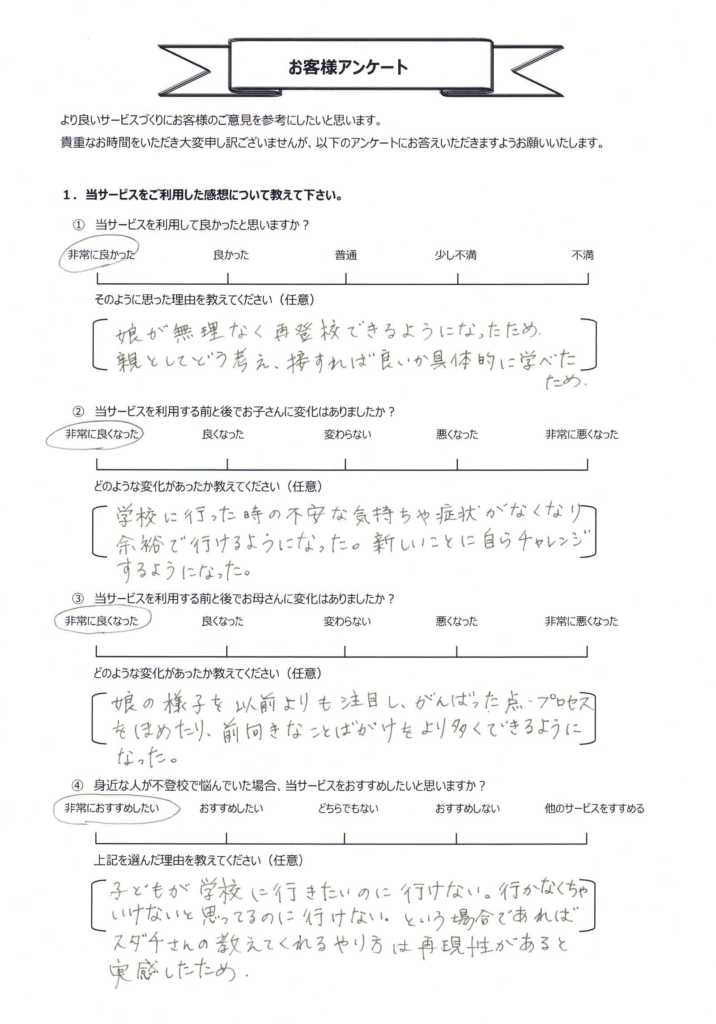 お客様アンケート
より良いサービスづくりにお客様のご意見を参考にしたいと思います。
貴重なお時間をいただき大変申し訳ございませんが、以下のアンケートにお答えいただきますようお願いいたします。
1．当サービスをご利用した感想について教えて下さい。
① 当サービスを利用して良かったと思いますか？
非常に良かった 良かった 普通 少し不満 不満
そのように思った理由を教えてください（任意）
娘が無理なく再登校できるようになったため.
親としてどう考え、接すれば良いか具体的に学べた
ため.
② 当サービスを利用する前と後でお子さんに変化はありましたか？
非常に良くなった 良くなった 変わらない 悪くなった 非常に悪くなった
どのような変化があったか教えてください（任意）
学校に行った時の不安な気持ちや症状がなくなり
余裕で行けるようになった。新しいことに自らチャレンジ
するようになった。
③ 当サービスを利用する前と後でお母さんに変化はありましたか？
非常に良くなった 良くなった 変わらない 悪くなった 非常に悪くなった
どのような変化があったか教えてください（任意）
娘の様子を以前よりも注目し、がんばった点・プロセス
をほめたり、前向きなことばがけをより多くできるように
なった。
④ 身近な人が不登校で悩んでいた場合、当サービスをおすすめしたいと思いますか？
非常におすすめしたい おすすめしたい どちらでもない おすすめしない 他のサービスをすすめる
上記を選んだ理由を教えてください（任意）
子どもが学校に行きたいのに行けない。行かなくちゃ
いけないと思ってるのに行けない。という場合であれば
スダチさんの教えてくれるやり方は再現性があると
実感したため.